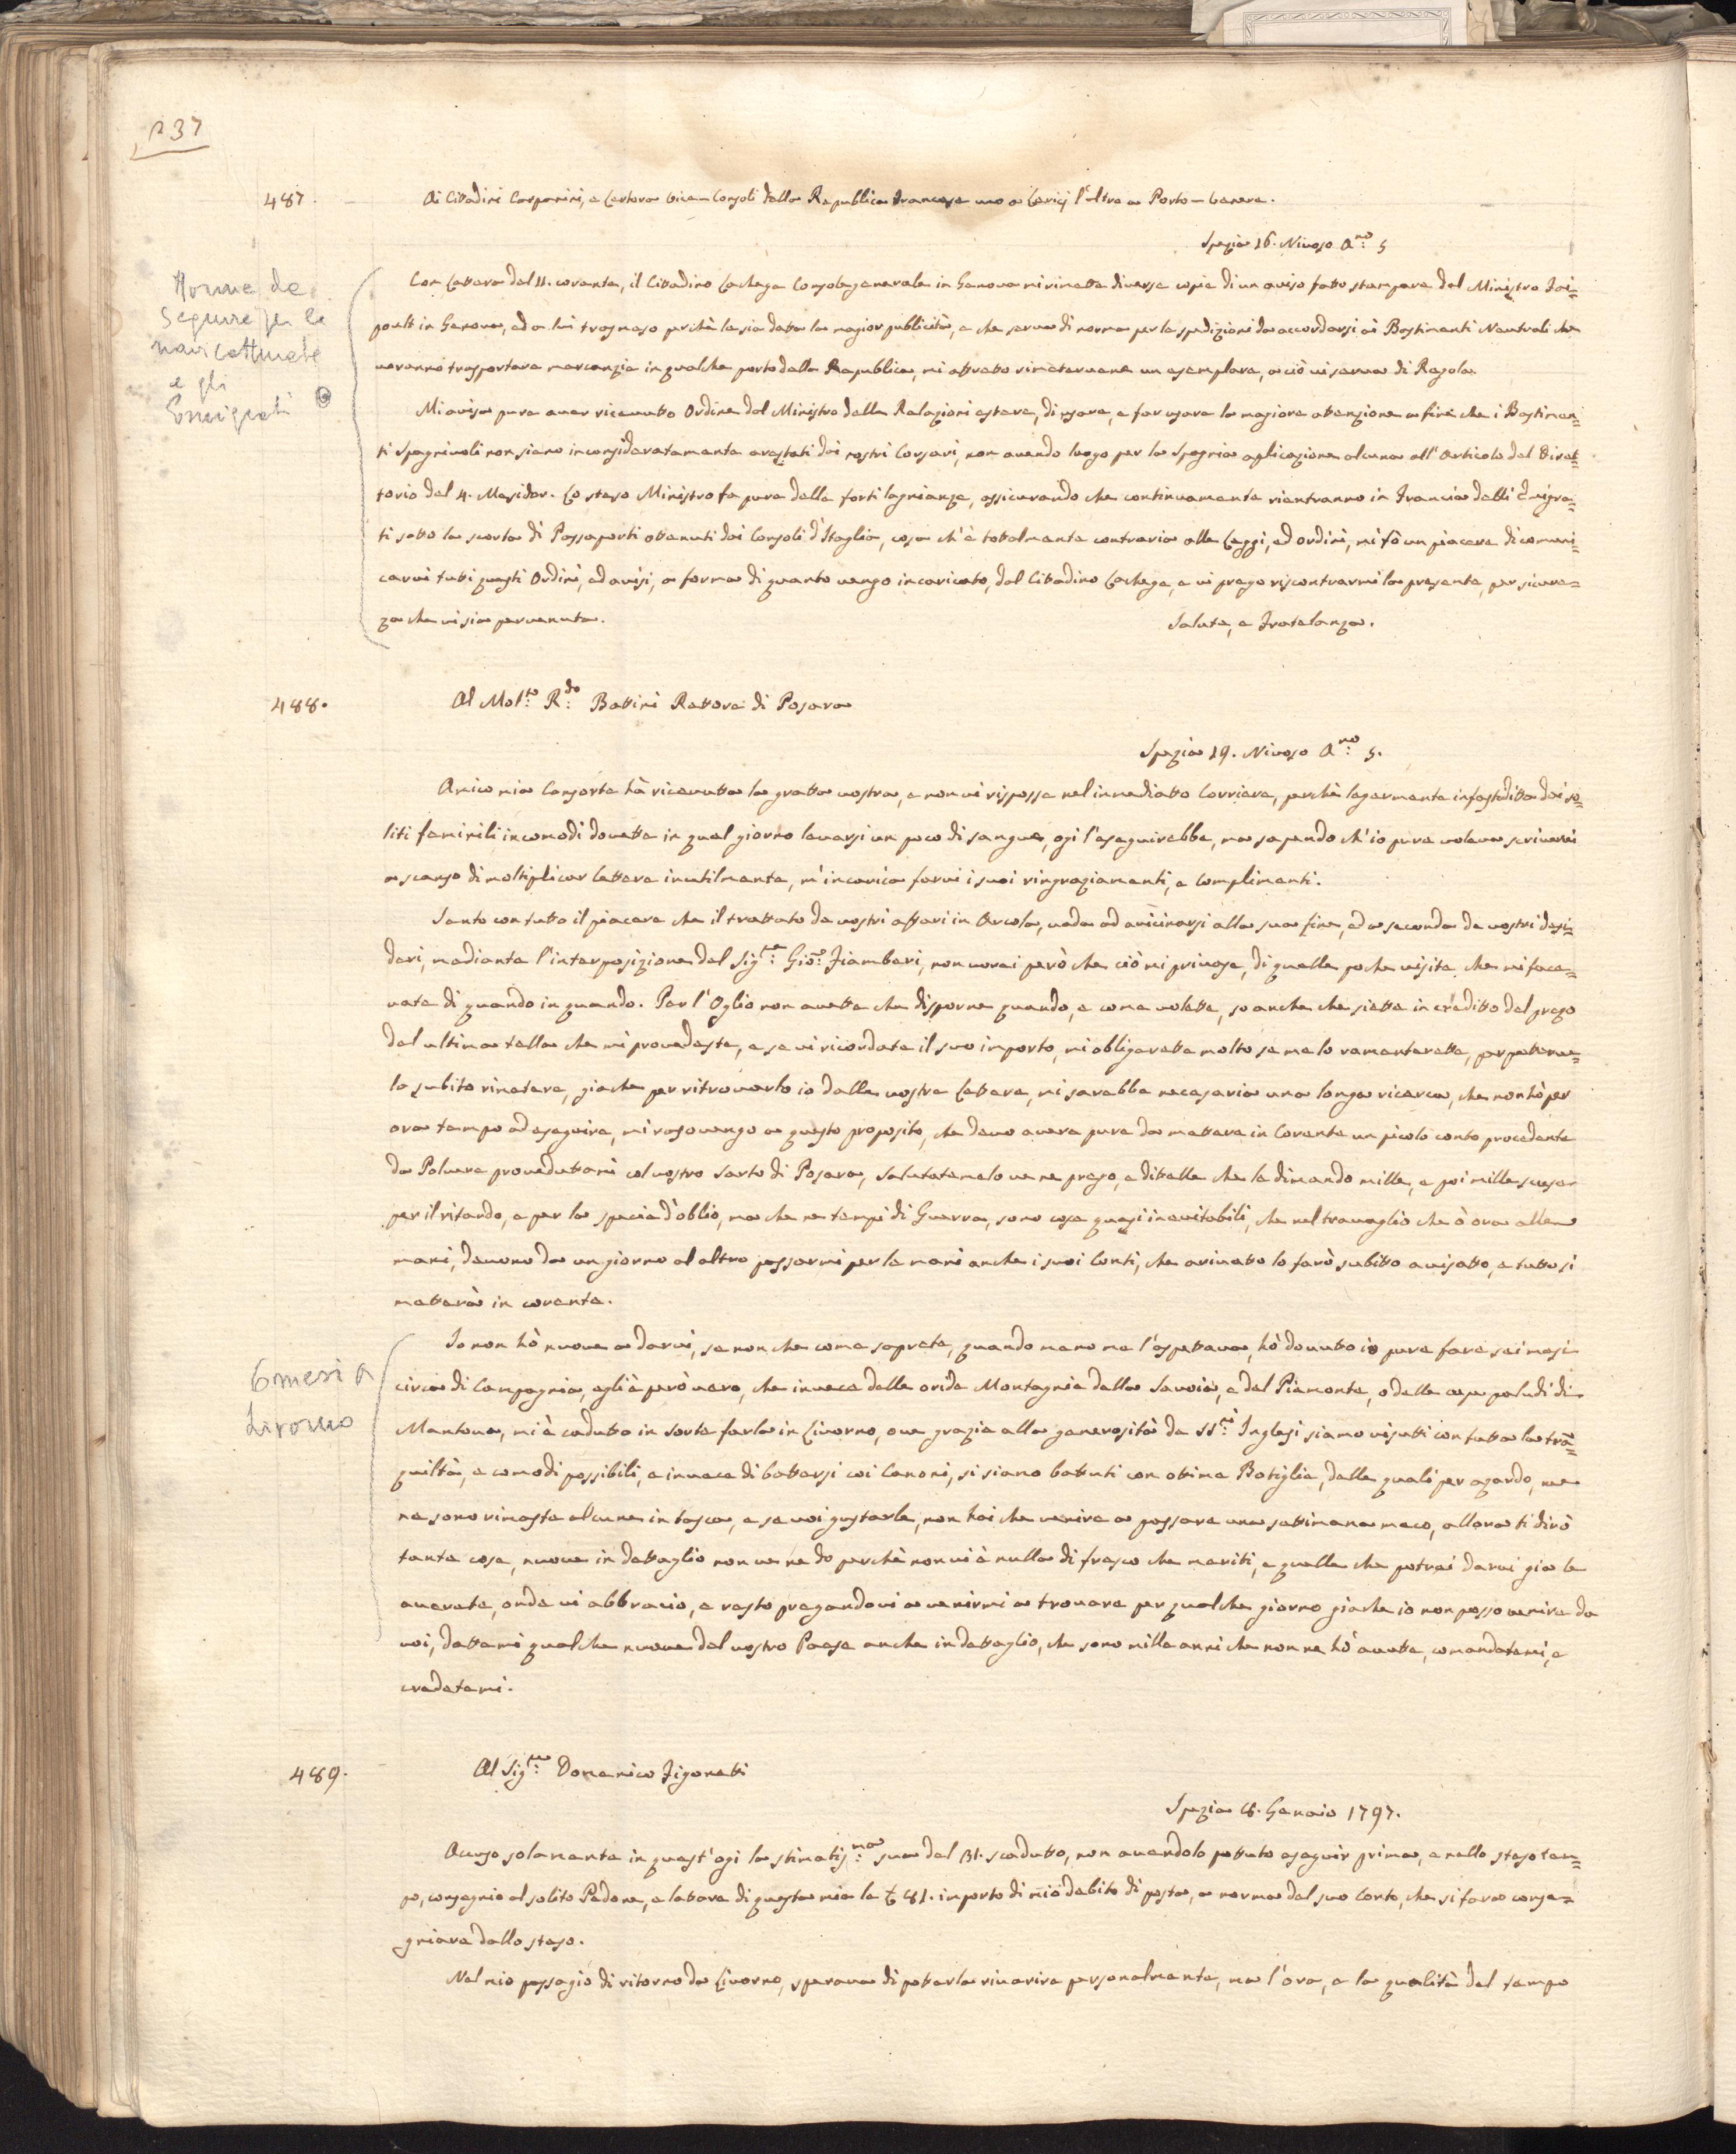 p 37
487. Ai Citadini Casparini, e Certora Vice-Consoli della Republica Francese uno a Lerici l'altro a Porto-Venere.
Spezia 16. Nivoso A:no 5
Norme da
seguire per le
navi catturate
e gli
Emigrati
Con Lettera del 11. corente, il Citadino Lachege Console generale in Genova mi rimette diverse copie di un aviso fatto stampare dal Ministro Fai=
poult in Genova, ed a lui trasmeso perchè le sia data la magior publicità, e che serva di norma per le spedizioni da accordarsi ai Bastimenti Neutrali che
voranno trasportare mercanzie in qualche porto della Republica, mi affretto rimetervene un esemplare, a ciò vi serva di Regola.
Mi avisa pure aver ricevuto Ordine dal Ministro delle Relazioni estere, di usare, e far usare la magiore atenzione a fine che i Bastimen=
ti Spagnivoli non siano inconsideratamente arestati dai nostri Corsari, non avendo luogo per la Spagnia aplicazione alcuna all'Articolo del Diret=
torio del 4. Mesidor. Lo steso Ministro fa pure delle forti lagnianze, assicurando che continuamente rientranno in Francia delli Emigra=
ti sotto la scorta di Passaporti otenuti dai Consoli d'Itaglia, cosa ch'è totalmente contraria alle Leggi, ed ordini, mi fò un piacere di comuni=
carvi tuti questi Ordini, ed avisi, a forma di quanto vengo incaricato, dal Citadino Lachege, e vi prego riscontrarmi la presente, per sicure=
za che vi sia pervenuta. Salute, e Fratelanza.
488. Al Mol:to R:do Battini Rettore di Posara
Spezia 19. Nivoso A:no 5.
Amico mia Consorte hà ricevuta la gratta vostra, e non vi rispose nel immediatto Corriere, perchè legermente infastidita dai so=
liti feminili incomodi dovette in qual giorno levarsi un poco di sangue, ogi l'eseguirebbe, ma sapendo ch'io pure voleva scrivervi
a scanso di moltiplicar Lettere inutilmente, m'incarica farvi i suoi ringraziamenti, e complimenti.
Sento con tutto il piacere che il trattato de vostri affari in Arcola, vada ad avicinarsi alla sua fine, ed a seconda de vostri desi=
deri, mediante l'interposizione del Sig:re Gio: Fiamberi, non vorei però che ciò mi privase, di quelle poche visite che mi face=
vate di quando in quando. Per l'Oglio non avette che disporne quando, e come volette, so anche che siette in creditto del prezo
del ultima tella che mi provedeste, e se vi ricordate il suo importo, mi obligarette molto se me lo ramentarette, per poterve=
lo subito rimetere, giache per ritrovarlo io dalle vostre Lettere, mi sarebbe necesaria una longa ricerca, che non hò per
ora tempo ad eseguire, mi rasovengo a questo proposito, che devo avere pure da mettere in Corente un picolo conto procedente
da Polvere provedutami col vostro Sarto di Posara, Salutatemelo ve ne prego, e ditelle che le dimando mille, e poi mille scuse
per il ritardo, e per la specie d'oblio, ma che ne tempi di Guerra, sono cose quasi inevitabili, che nel travaglio che ò ora alle
mani, devono da un giorno al altro passarmi per le mani anche i suoi Conti, che arivato lo farò subitto avisatto, e tutto si
metterà in corente.
6 mesi a
Livorno
Io non hò nuove a darvi, se non che come saprete, quando meno me l'aspettava, hò dovuto io pure fare sei mesi
circa di Campagnia, egli è però vero, che invece delle aride Montagnie della Savoia, e del Piemonte, o delle cupe paludi di
Mantova, mi è cadutto in sorte farla in Livorno, ove grazie alla generosità de SS:ri Inglesi siamo visuti con tutta la tra=
quiltà, e comodi possibili, e invece di battersi coi Canoni, si siamo battuti con otime Botiglie, delle quali per azardo, me
ne sono rimaste alcune in tasca, e se voi gustarle, non hai che venire a passare una settimana meco, allora ti dirò
tante cose, nuove in dettaglio non ve ne do perchè non vi è nulla di fresco che meriti, e quelle che potrei darvi gia le
averete, onde vi abbracio, e resto pregandovi a venirmi a trovare per qualche giorno giache io non posso venire da
voi, dattemi qualche nuova del vostro Paese anche in dettaglio, che sono mille anni che non ne hò avutte, comandatemi, e
credetemi.
489. Al Sig:re Domenico Figoretti
Spezia 8. Genaio 1797.
Acuso solamente in quest'ogi la stimatis:ma sua del 31. scadutto, non avendolo potuto eseguir prima, e nello steso tem=
po, consegnio al solito Padone, e latore di questa mia le £ 81. importo di mio debito di posta, a norma del suo Conto, che si farà conse=
gniare dallo steso.
Nel mio passagio di ritorno da Livorno, sperava di poterla riverire personalmente, ma l'ora, e la qualità del tempo